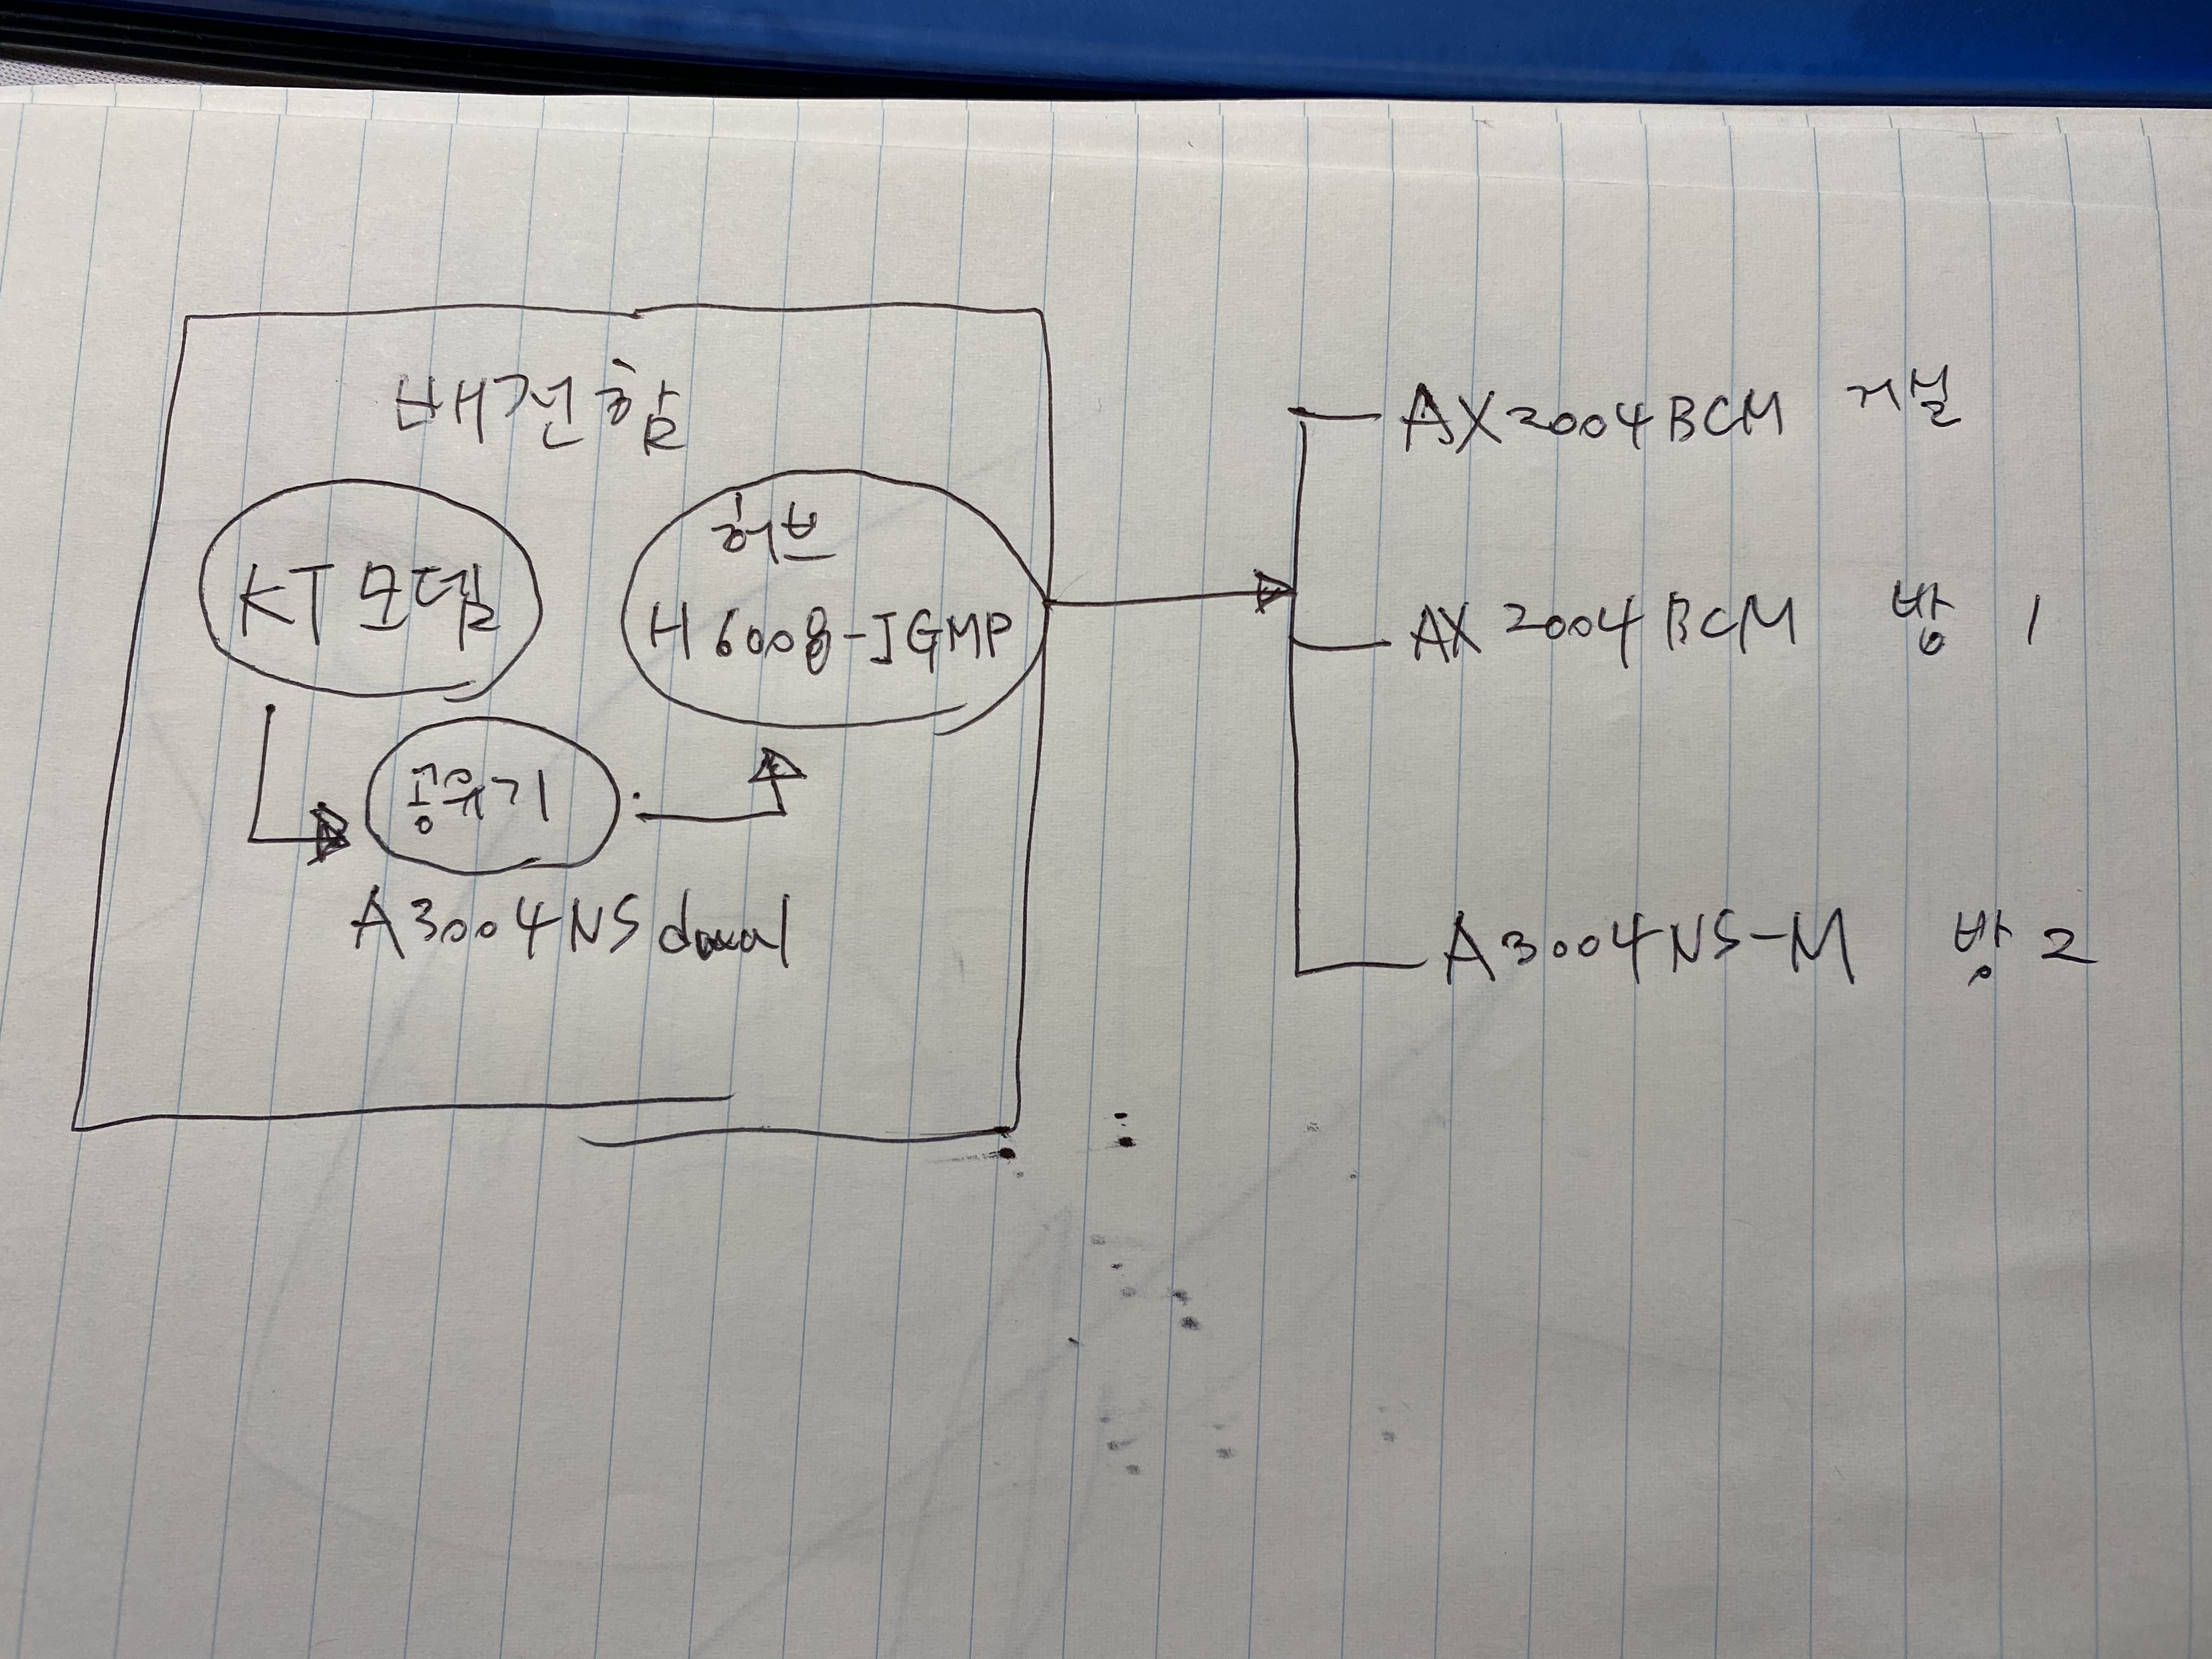 배전함
KT 모뎀
허브
H6008-IGMP
공유기
A3004NS dual
AX2004BCM 거실
AX2004BCM 방 1
A3004NS-M 방 2